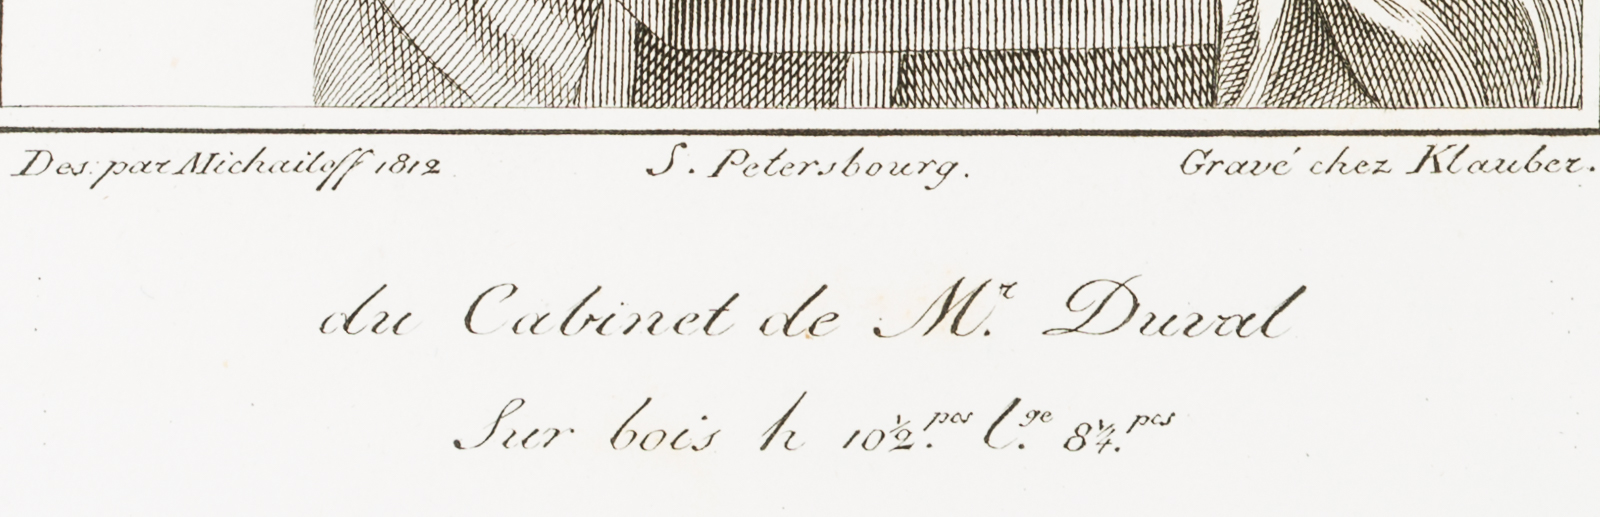 Des: par Michailoff 1812 S. Petersbourg. Gravé chez Klauber.
du Cabinet de Mr. Duval
Sur bois h 10 1/2. pcs l.ge 8 1/4. pcs